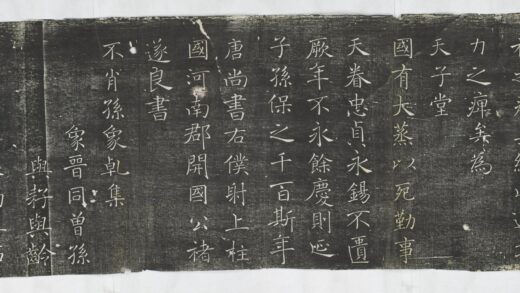 力之痺矣為
天子堂
國有大蒸以死勤事
天眷忠貞永錫不匱
厥年不永餘慶則延
子孫保之千百斯年
唐尚書右僕射上柱
國河南郡開國公褚
遂良書
不肖孫象乹集
象晉同曾孫
與與齡